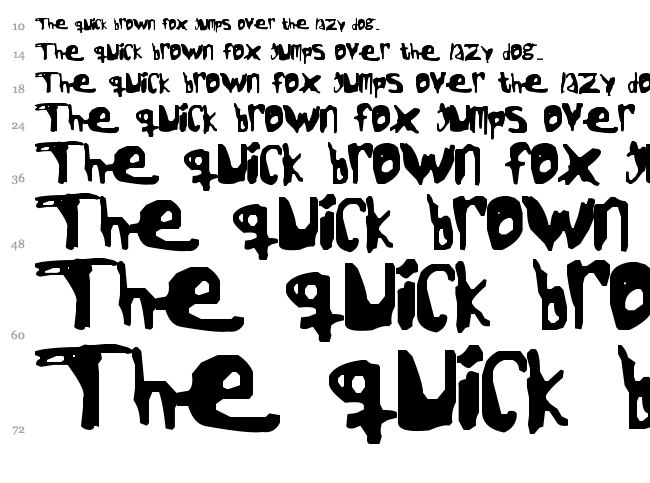 10 The quick brown fox jumps over the lazy dog.
14 The quick brown fox jumps over the lazy dog.
18 The quick brown fox jumps over the lazy do
24 The quick brown fox jumps over
36 The quick brown fox j
48 The quick brown
60 The quick bro
72 The quick b